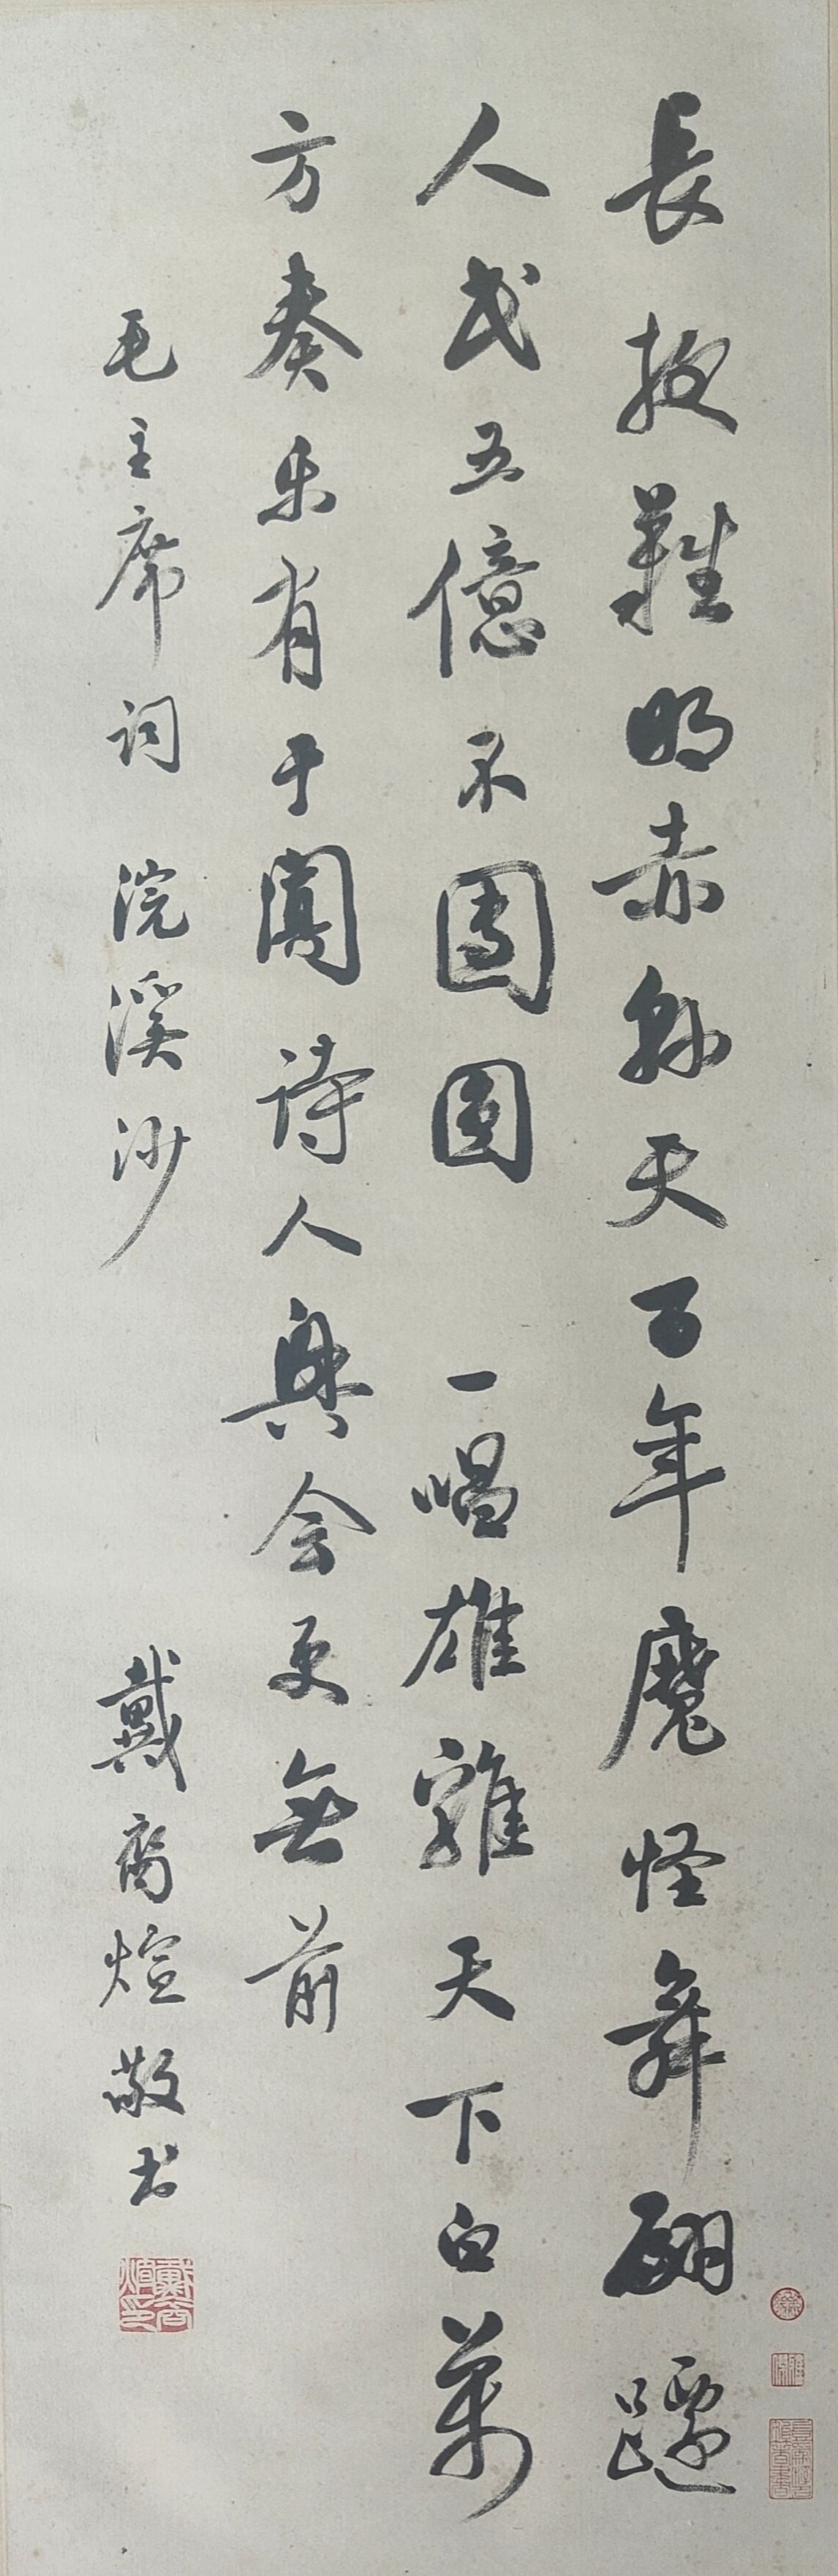 長夜難明赤縣天百年魔怪舞翩躚
人民五億不團圓 一唱雄雞天下白萬
方奏乐有于闐诗人興会更無前
毛主席词 浣溪沙 戴裔煊敬书
戴裔煊印